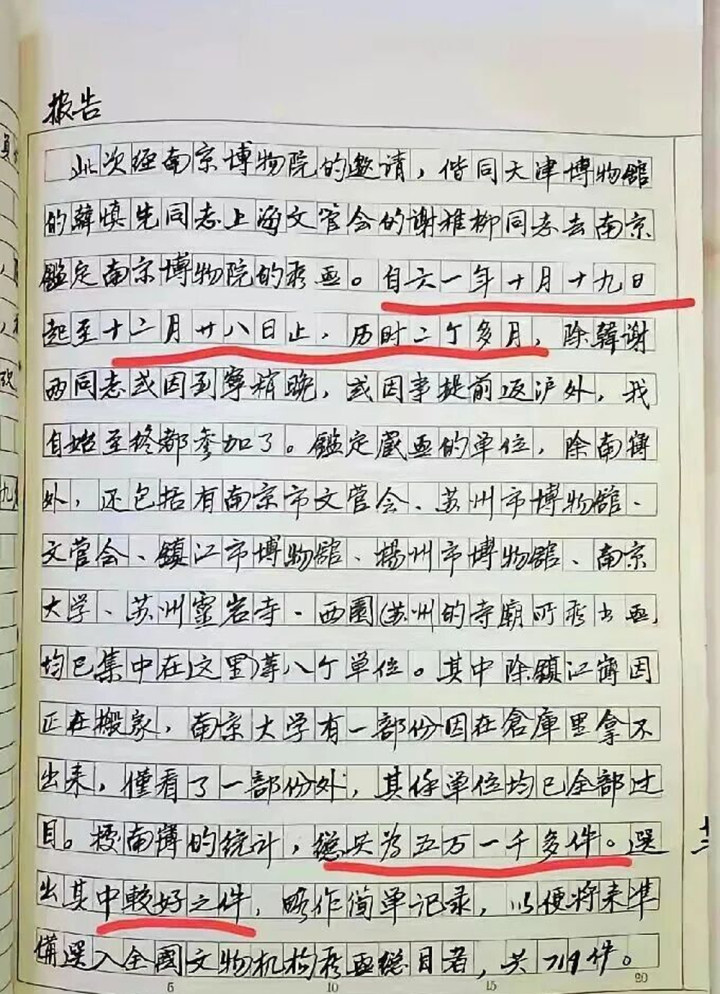 报告
此次经南京博物院的邀请，偕同天津博物館
的韓慎先同志上海文管会的谢稚柳同志去南京
鑑定南京博物院的藏画。自六一年十月十九日
起至十二月廿八日止，历时二个多月，除韓谢
两同志或因到寧稍晚，或因事提前返沪外，我
自始至终都参加了。鑑定藏画的单位，除南博
外，还包括有南京市文管会、苏州市博物館、
文管会、鎮江市博物館、揚州市博物館、南京
大学、苏州靈岩寺·西園(苏州的寺廟所藏出画
均已集中在这里)等八个单位。其中除鎮江博因
正在搬家，南京大学有一部份因在倉庫里拿不
出来，僅看了一部份外，其任单位均已全部过
目。据南博的统计，總共为五万一千多件。選
出其中較好之件，略作简单记录，以便将来準
備選入全國文物机构藏画總目者，共719件。
5 10 15 20